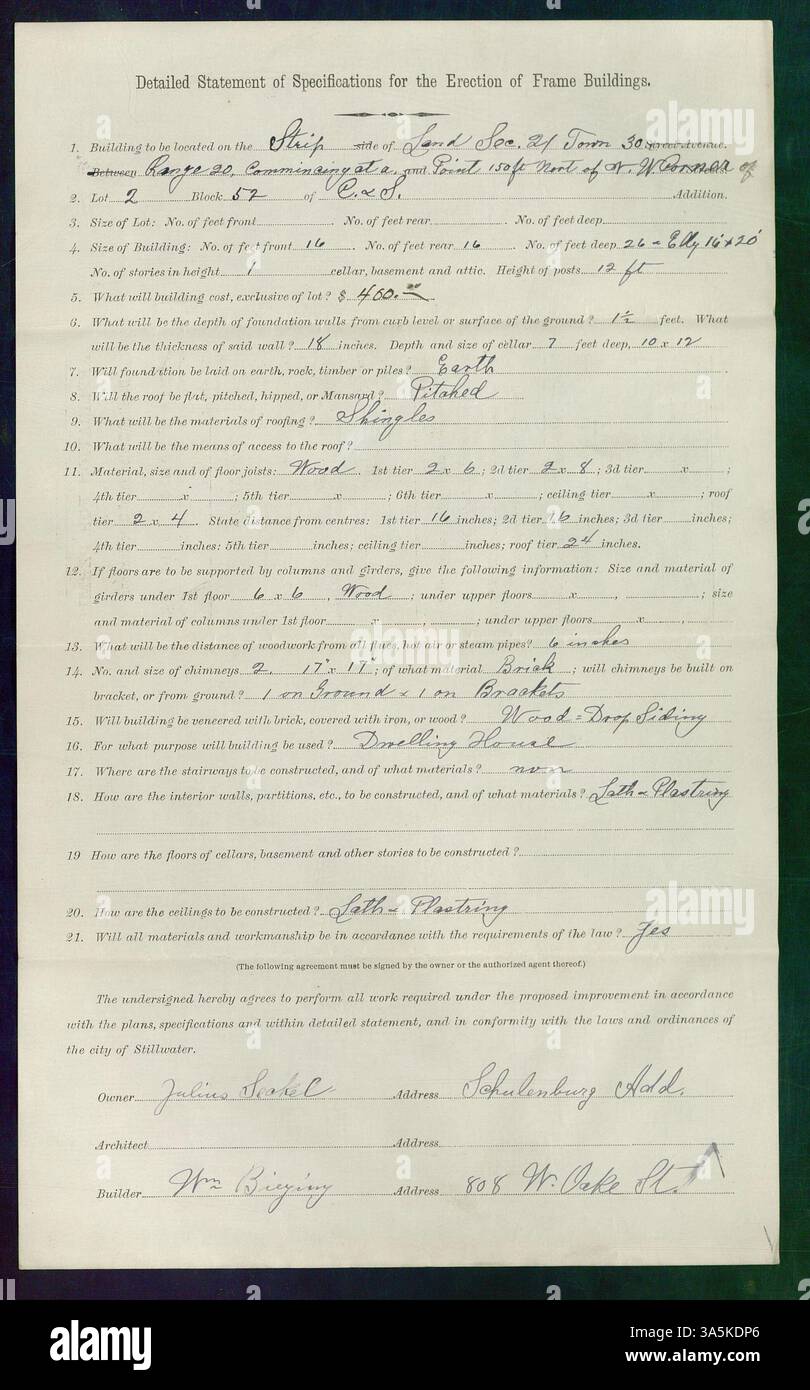 Detailed Statement of Specifications for the Erection of Frame Buildings.
1. Building to be located on the Strip side of Land Sec. 21 Town 30 Street Avenue.
Between Range 20, Commincing at a and Point 150 ft Nort of N. W. Corner of
2. Lot 2 Block 52 of C. & S. Addition.
3. Size of Lot: No. of feet front No. of feet rear No. of feet deep
4. Size of Building: No. of feet front 16 No. of feet rear 16 No. of feet deep 26 16' x 20'
No. of stories in height 1 cellar, basement and attic. Height of posts 12 ft
5. What will building cost, exclusive of lot? $ 400.00
6. What will be the depth of foundation walls from curb level or surface of the ground? 1½ feet. What
will be the thickness of said wall? 18 inches. Depth and size of cellar 7 feet deep, 10 x 12
7. Will foundition be laid on earth, rock, timber or piles? Earth
8. Will the roof be flat, pitched, hipped, or Mansard? Pitched
9. What will be the materials of roofing? Shingles
10. What will be the means of access to the roof?
11. Material, size and of floor joists: Wood 1st tier 2 x 6; 2d tier 2 x 8; 3d tier x ;
4th tier x ; 5th tier x ; 6th tier x ; ceiling tier x ; roof
tier 2 x 4 State distance from centres: 1st tier 16 inches; 2d tier 16 inches; 3d tier inches;
4th tier inches: 5th tier inches; ceiling tier inches; roof tier 24 inches.
12. If floors are to be supported by columns and girders, give the following information: Size and material of
girders under 1st floor 6 x 6, Wood ; under upper floors x , ; size
and material of columns under 1st floor x , ; under upper floors x ,
13. What will be the distance of woodwork from all flues, hot air or steam pipes? 6 inches
14. No. and size of chimneys 2. 17" x 17" ; of what material Brick ; will chimneys be built on
bracket, or from ground? 1 on Ground & 1 on Brackets
15. Will building be veneered with brick, covered with iron, or wood? Wood = Drop Siding
16. For what purpose will building be used? Dwelling House
17. Where are the stairways to be constructed, and of what materials? non
18. How are the interior walls, partitions, etc., to be constructed, and of what materials? Lath & Plastring
19 How are the floors of cellars, basement and other stories to be constructed?
20. How are the ceilings to be constructed? Lath & Plastring
21. Will all materials and workmanship be in accordance with the requirements of the law? Yes
(The following agreement must be signed by the owner or the authorized agent thereof.)
The undersigned hereby agrees to perform all work required under the proposed improvement in accordance
with the plans, specifications and within detailed statement, and in conformity with the laws and ordinances of
the city of Stillwater.
Owner Julius Seckel Address Schulenburg Add.
Architect Address
Builder Wm Bieging Address 808 W. Oake St.
alamy
a
alamy
Image ID: 3A5KDP6
www.alamy.com